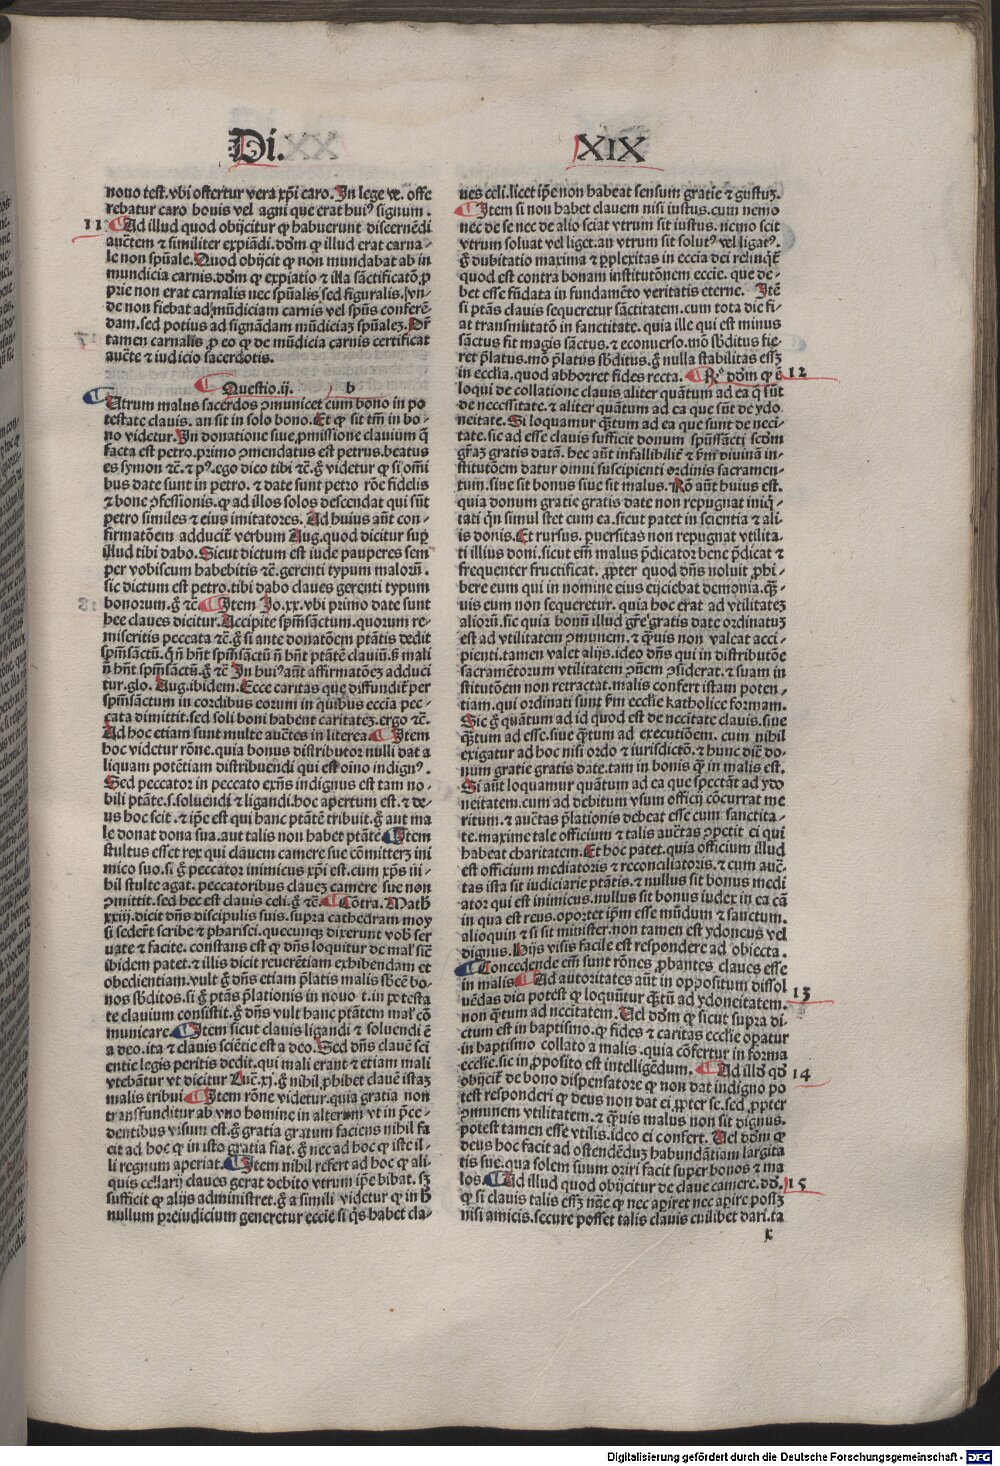 Di. XIX
nouo test. vbi offertur vera xp̄i caro. In lege vͦo. offe
rebatur caro bouis vel agni que erat huiꝰ signum.
11 Ad illud quod obijcitur ꝙ habuerunt discernēdi
auc̄tem ⁊ similiter expiādi. dōm ꝙ illud erat carna⸗
le non spūale. Quod obijcit̄ ꝙ non mundabat ab in
mundicia carnis. dōm ꝙ expiatio ⁊ illa sāctificatō ꝓ
prie non erat carnalis nec spūalis sed figuralis. vn⸗
de non fiebat ad mūdiciam carnis vel spūs conferē⸗
dam. sed potius ad signādam mūdiciaꝫ spūaleꝫ. Dr̄
tamen carnalis ꝓ eo ꝙ de mūdicia carnis certificat
auc̄te ⁊ iudicio sacerdotis.
Questio.ij. b
Utrum malus sacerdos ꝯmunicet cum bono in po
testate clauis. an sit in solo bono. Et ꝙ sit tm̄ in bo⸗
no videtur. In donatione siue ꝓmissione clauium q̄
facta est petro. primo ꝯmendatus est petrus. beatus
es symon ⁊c̄. ⁊ pꝰ. ego dico tibi ⁊c̄. ḡ videtur ꝙ si om̄i
bus date sunt in petro. ⁊ date sunt petro rōe fidelis
⁊ bone ꝯfessionis. ꝙ ad illos solos descendat qui sūt
petro similes ⁊ eius imitatores. Ad huius aūt con⸗
firmatōem adducit̄ verbum Aug. quod dicitur suꝑ
illud tibi dabo. Sicut dictum est iude pauperes sem
per vobiscum habebitis ⁊c̄. gerenti typum malorū.
sic dictum est petro. tibi dabo claues gerenti typum
bonorum. ḡ ⁊c̄ Item Jo.xx. vbi primo date sunt
hee claues dicitur. Accipite spm̄sāctum. quorum re⸗
miseritis peccata ⁊c̄. ḡ si ante donatōem ptātis dedit
spm̄sāctū. q̄ n̄ hn̄t spm̄sāctū n̄ hn̄t ptātē clauiū. s̄ mali
n̄ hn̄t spm̄sāctū. ḡ ⁊c̄ In huiꝰ aūt affirmatōeꝫ adduci
tur. glo. Aug. ibidem. Ecce caritas que diffundit̄ per
spm̄sāctum in cordibus eorum in quibus eccia pec⸗
cata dimittit. sed soli boni habent caritateꝫ. ergo ⁊c̄.
Ad hoc etiam sunt multe auc̄tes in litera. Item
hoc videtur rōne. quia bonus distributor nulli dat a
liquam potētiam distribuendi qui est oīno indignꝰ.
Sed peccator in peccato exn̄s indignus est tam no⸗
bili ptāte. s. soluendi ⁊ ligandi. hoc apertum est. ⁊ de⸗
us hoc scit. ⁊ ip̄e est qui hanc ptātē tribuit. ḡ aut ma
le donat dona sua. aut talis non habet ptātē Item
stultus esset rex qui clauem camere sue cōmitterꝫ ini
mico suo. si ḡ peccator inimicus xp̄i est. cum xp̄s ni⸗
hil stulte agat. peccatoribus claueꝫ camere sue non
ꝯmittit. sed hec est clauis celi. ḡ ⁊c̄ Cōtra. Math̄
xxiij. dicit dn̄s discipulis suis. supra cathedram moy
si sedert̄ scribe ⁊ pharisei. quecunqꝫ dixerunt vob̄ ser
uate ⁊ facite. constans est ꝙ dn̄s loquitur de mal̄ sic̄
ibidem patet. ⁊ illis dicit reuerētiam exhibendam et
obedientiam. vult ḡ dn̄s etiam p̄latis malis sb̄ēē bo⸗
nos sb̄ditos. si ḡ ptās p̄lationis in nouo t. in potesta
te clauium consistit. ḡ dn̄s vult hanc ptātem mal̄ cō
municare. Item sicut clauis ligandi ⁊ soluendi ē
a deo. ita ⁊ clauis sciētie est a deo. Sed dn̄s clauē sci
entie legis peritis dedit. qui mali erant ⁊ etiam mali
vtebātur vt dicitur Luc̄.xj. ḡ nihil ꝓhibet clauē istaꝫ
malis tribui Item rōne videtur. quia gratia non
transfunditur ab vno homine in alterum vt in p̄ce⸗
dentibus visum est. ḡ gratia gratum faciens nihil fa
cit ad hoc ꝙ in isto gratia fiat. ḡ nec ad hoc ꝙ iste il⸗
li regnum aperiat. Item nihil refert ad hoc ꝙ ali⸗
quis cellarij claues gerat debito vtrum ip̄e bibat. sꝫ
sufficit ꝙ alijs administret. ḡ a simili videtur ꝙ in h̄
nullum preiudicium generetur eccie si qͥs habet cla⸗
ues celi. licet ip̄e non habeat sensum gratie ⁊ gustuꝫ.
Item si non habet clauem nisi iustus. cum nemo
nec de se nec de alio sciat vtrum sit iustus. nemo scit
vtrum soluat vel liget. an vtrum sit solutꝰ vel ligatꝰ.
ḡ dubitatio maxima ⁊ ꝑplexitas in eccia dei relinqt̄
quod est contra bonam institutōnem eccie. que de⸗
bet esse fūdata in fundamēto veritatis eterne. Itē
si ptās clauis sequeretur sāctitatem. cum tota die fi⸗
at transmutatō in sanctitate. quia ille qui est minus
sāctus fit magis sāctus. ⁊ econuerso. mō sb̄ditus fie⸗
ret p̄latus. mō p̄latus sb̄ditus. ḡ nulla stabilitas esseꝫ
in ecclīa. quod abhorret fides recta. R̄ͦ dōm ꝙ ē 12
loqui de collatione clauis aliter quātum ad ea q̄ sūt
de necessitate. ⁊ aliter quātum ad ea que sūt de ydo
neitate. Si loquamur qᷓtum ad ea que sunt de neci⸗
tate. sic ad esse clauis sufficit donum spūssācti scdm̄
gr̄aꝫ gratis datā. hec aūt infallibilit̄ ⁊ ẜm diuinā in⸗
stitutōem datur omni suscipienti ordinis sacramen⸗
tum. siue sit bonus siue sit malus. Rō aūt huius est.
quia donum gratie gratis date non repugnat iniqͥ⸗
tati qn̄ simul stet cum ea. sicut patet in scientia ⁊ ali⸗
is donis. Et rursus. ꝑuersitas non repugnat vtilita⸗
ti illius doni. sicut em̄ malus p̄dicator bene p̄dicat ⁊
frequenter fructificat. ꝓpter quod dn̄s noluit ꝓhi⸗
bere eum qui in nomine eius eijciebat demonia. qᷓ⸗
uis eum non sequeretur. quia hoc erat ad vtilitateꝫ
aliorū. sic quia bonū illud gr̄e gratis date ordinatuꝫ
est ad vtilitatem ꝯmunem. ⁊ qᷓuis non valeat acci⸗
pienti. tamen valet alijs. ideo dn̄s qui in distributōe
sacramētorum vtilitatem ꝯūem ꝯsiderat. ⁊ suam in
stitutōem non retractat. malis confert istam poten⸗
tiam. qui ordinati sunt ẜm ecclīe katholice formam.
Sic ḡ quātum ad id quod est de nccitate clauis. siue
qᷓtum ad esse. siue qᷓtum ad executiōem. cum nihil
exigatur ad hoc nisi ordo ⁊ iurisdictō. ⁊ hunc dicē do⸗
num gratie gratis date. tam in bonis ꝙ in malis est.
Si aūt loquamur quātum ad ea que spectāt ad ydo
neitatem. cum ad debitum vsum officij cōcurrat me
ritum. ⁊ auc̄tas p̄lationis debeat esse cum sanctita⸗
te. maxime tale officium ⁊ talis auc̄tas ꝯpetit ei qui
habeat charitatem. Et hoc patet. quia officium illud
est officium mediatoris ⁊ reconciliatoris. ⁊ cum auc̄⸗
tas ista sit iudiciarie ptātis. ⁊ nullus sit bonus medi
ator qui est inimicus. nullus sit bonus iudex in ea cā
in qua est reus. oportet ip̄m esse mūdum ⁊ sanctum.
alioquin ⁊ si sit minister. non tamen est ydoneus vel
dignus. Hijs visis facile est respondere ad obiecta.
Concedende em̄ sunt rōnes ꝓbantes claues esse
in malis Ad autoritates aūt in oppositum dissol 13
uēdas dici potest ꝙ loquūtur qᷓtū ad ydoneitatem.
non qᷓtum ad nccitatem. Uel dōm ꝙ sicut supra di⸗
ctum est in baptismo. ꝙ fides ⁊ caritas ecclīe oꝑatur
in baptismo collato a malis. quia cōfertur in forma
ecclīe. sic in ꝓposito est intelligēdum. Ad illd̄ qd̄ 14
obijcit̄ de bono dispensatore ꝙ non dat indigno po
test responderi ꝙ deus non dat ei ꝓpter se. sed ꝓpter
ꝯmunem vtilitatem. ⁊ qᷓuis malus non sit dignus.
potest tamen esse vtilis. ideo ei confert. Uel dōm ꝙ
deus hoc facit ad ostendēduꝫ habundātiam largita
tis sue. qua solem suum oriri facit super bonos ⁊ ma
los. Ad illud quod obijcitur de claue camere. dō. 15
ꝙ si clauis talis esseꝫ nāe ꝙ nec apiret nec apire possꝫ
nisi amicis. secure posset talis clauis cuilibet dari. ta
r
Digitalisierung gefördert durch die Deutsche Forschungsgemeinschaft - DFG